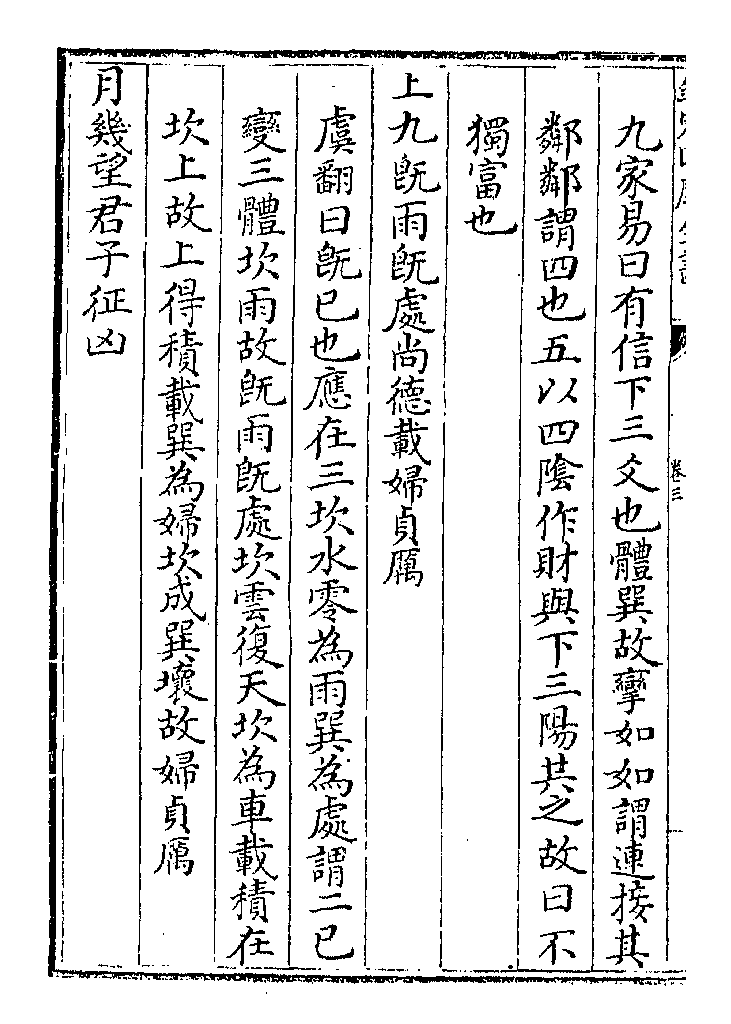 九家易曰有信下三爻也體巽故孿如如謂連接其
鄰鄰謂四也五以四陰作財與下三陽其之故曰不
獨富也
上九旣雨旣處尚德載婦貞厲
虞翻曰旣已也應在三坎水零為雨巽為處謂二已
變三體坎雨故旣雨旣處坎雲復天坎為車載積在
坎上故上得積載巽為婦坎成巽壞故婦貞厲
月幾望君子征凶
卷三